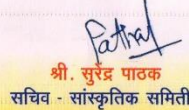 श्री. सुरेंद्र पाठक
सचिव - सांस्कृतिक समिती